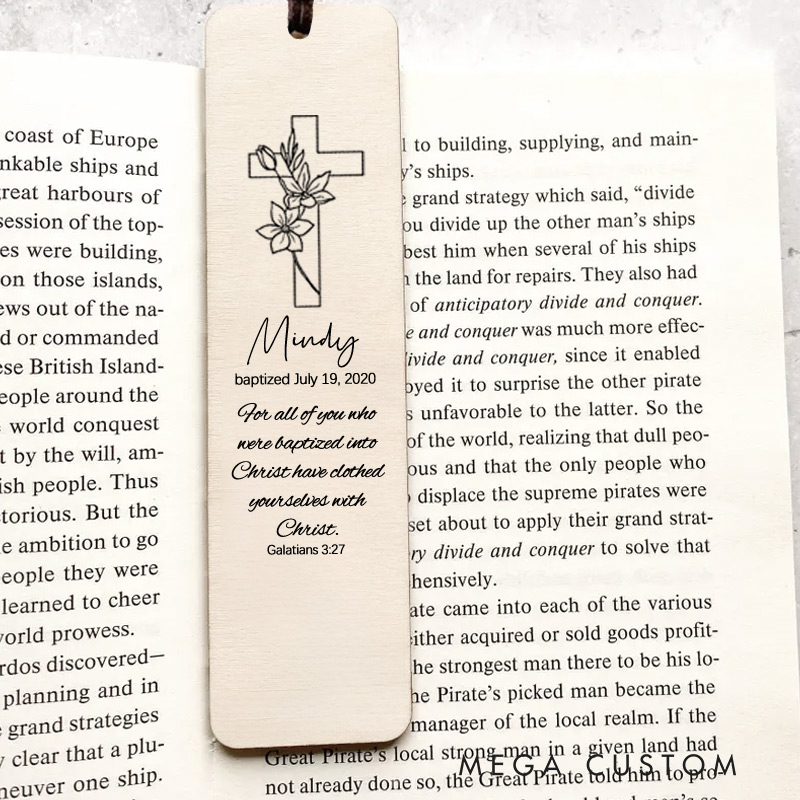 coast of Europe
nkable ships and
reat harbours of
session of the top-
es were building,
on those islands,
ews out of the na-
d or commanded
ese British Island-
eople around the
world conquest
t by the will, am-
ish people. Thus
torious. But the
e ambition to go
eople they were
learned to cheer
vorld prowess.
rdos discovered—
planning and in
grand strategies
y clear that a plu-
neuver one ship.
Mindy
baptized July 19, 2020
For all of you who
were baptized into
Christ have clothed
yourselves with
Christ.
Galatians 3:27
l to building, supplying, and main-
y's ships.
grand strategy which said, “divide
ou divide up the other man's ships
best him when several of his ships
the land for repairs. They also had
of anticipatory divide and conquer.
e and conquer was much more effec-
ivide and conquer, since it enabled
oyed it to surprise the other pirate
s unfavorable to the latter. So the
of the world, realizing that dull peo-
ous and that the only people who
displace the supreme pirates were
set about to apply their grand strat-
ry divide and conquer to solve that
hensively.
ate came into each of the various
either acquired or sold goods profit-
he strongest man there to be his lo-
he Pirate's picked man became the
manager of the local realm. If the
Great Pirate's local strong-man in a given land had
not already done so, the Great Pirate told him to pro-
MEGA CUSTOM